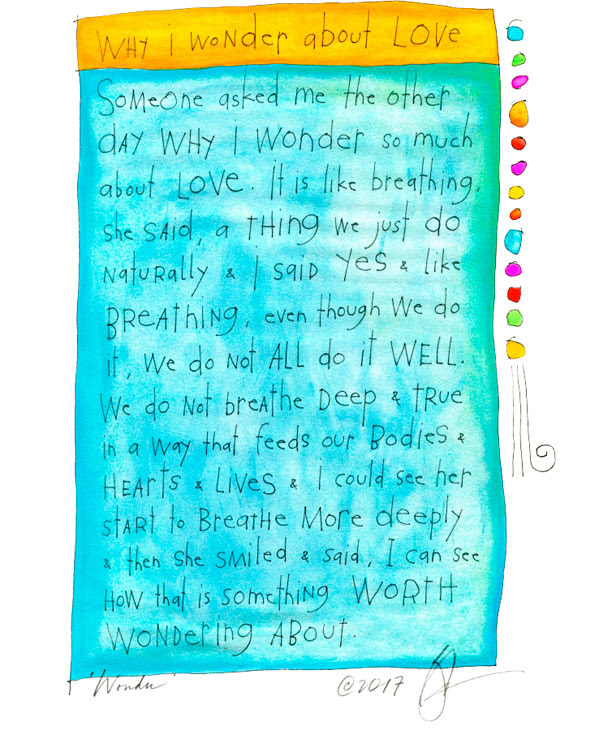 WHY i WoNder about LOVE
SoMeOne asked me the other
dAY WHY I WONder so much
about LOVe. It is like breathing,
she SAid, a THing we just do
NatuRally & I SAID YeS & like
BREAthiNG, even though We do
it, We do Not ALL do it WELL.
We do Not breAthe Deep & tRue
in a way that feeds our BodIeS &
HEArts & LiVeS & I could see her
stARt to BreatHe More deeply
& then she SMiled & said, I can see
HoW that is sometHiNg WORTH
WONDering ABOUT.
'Wonder' ©2017